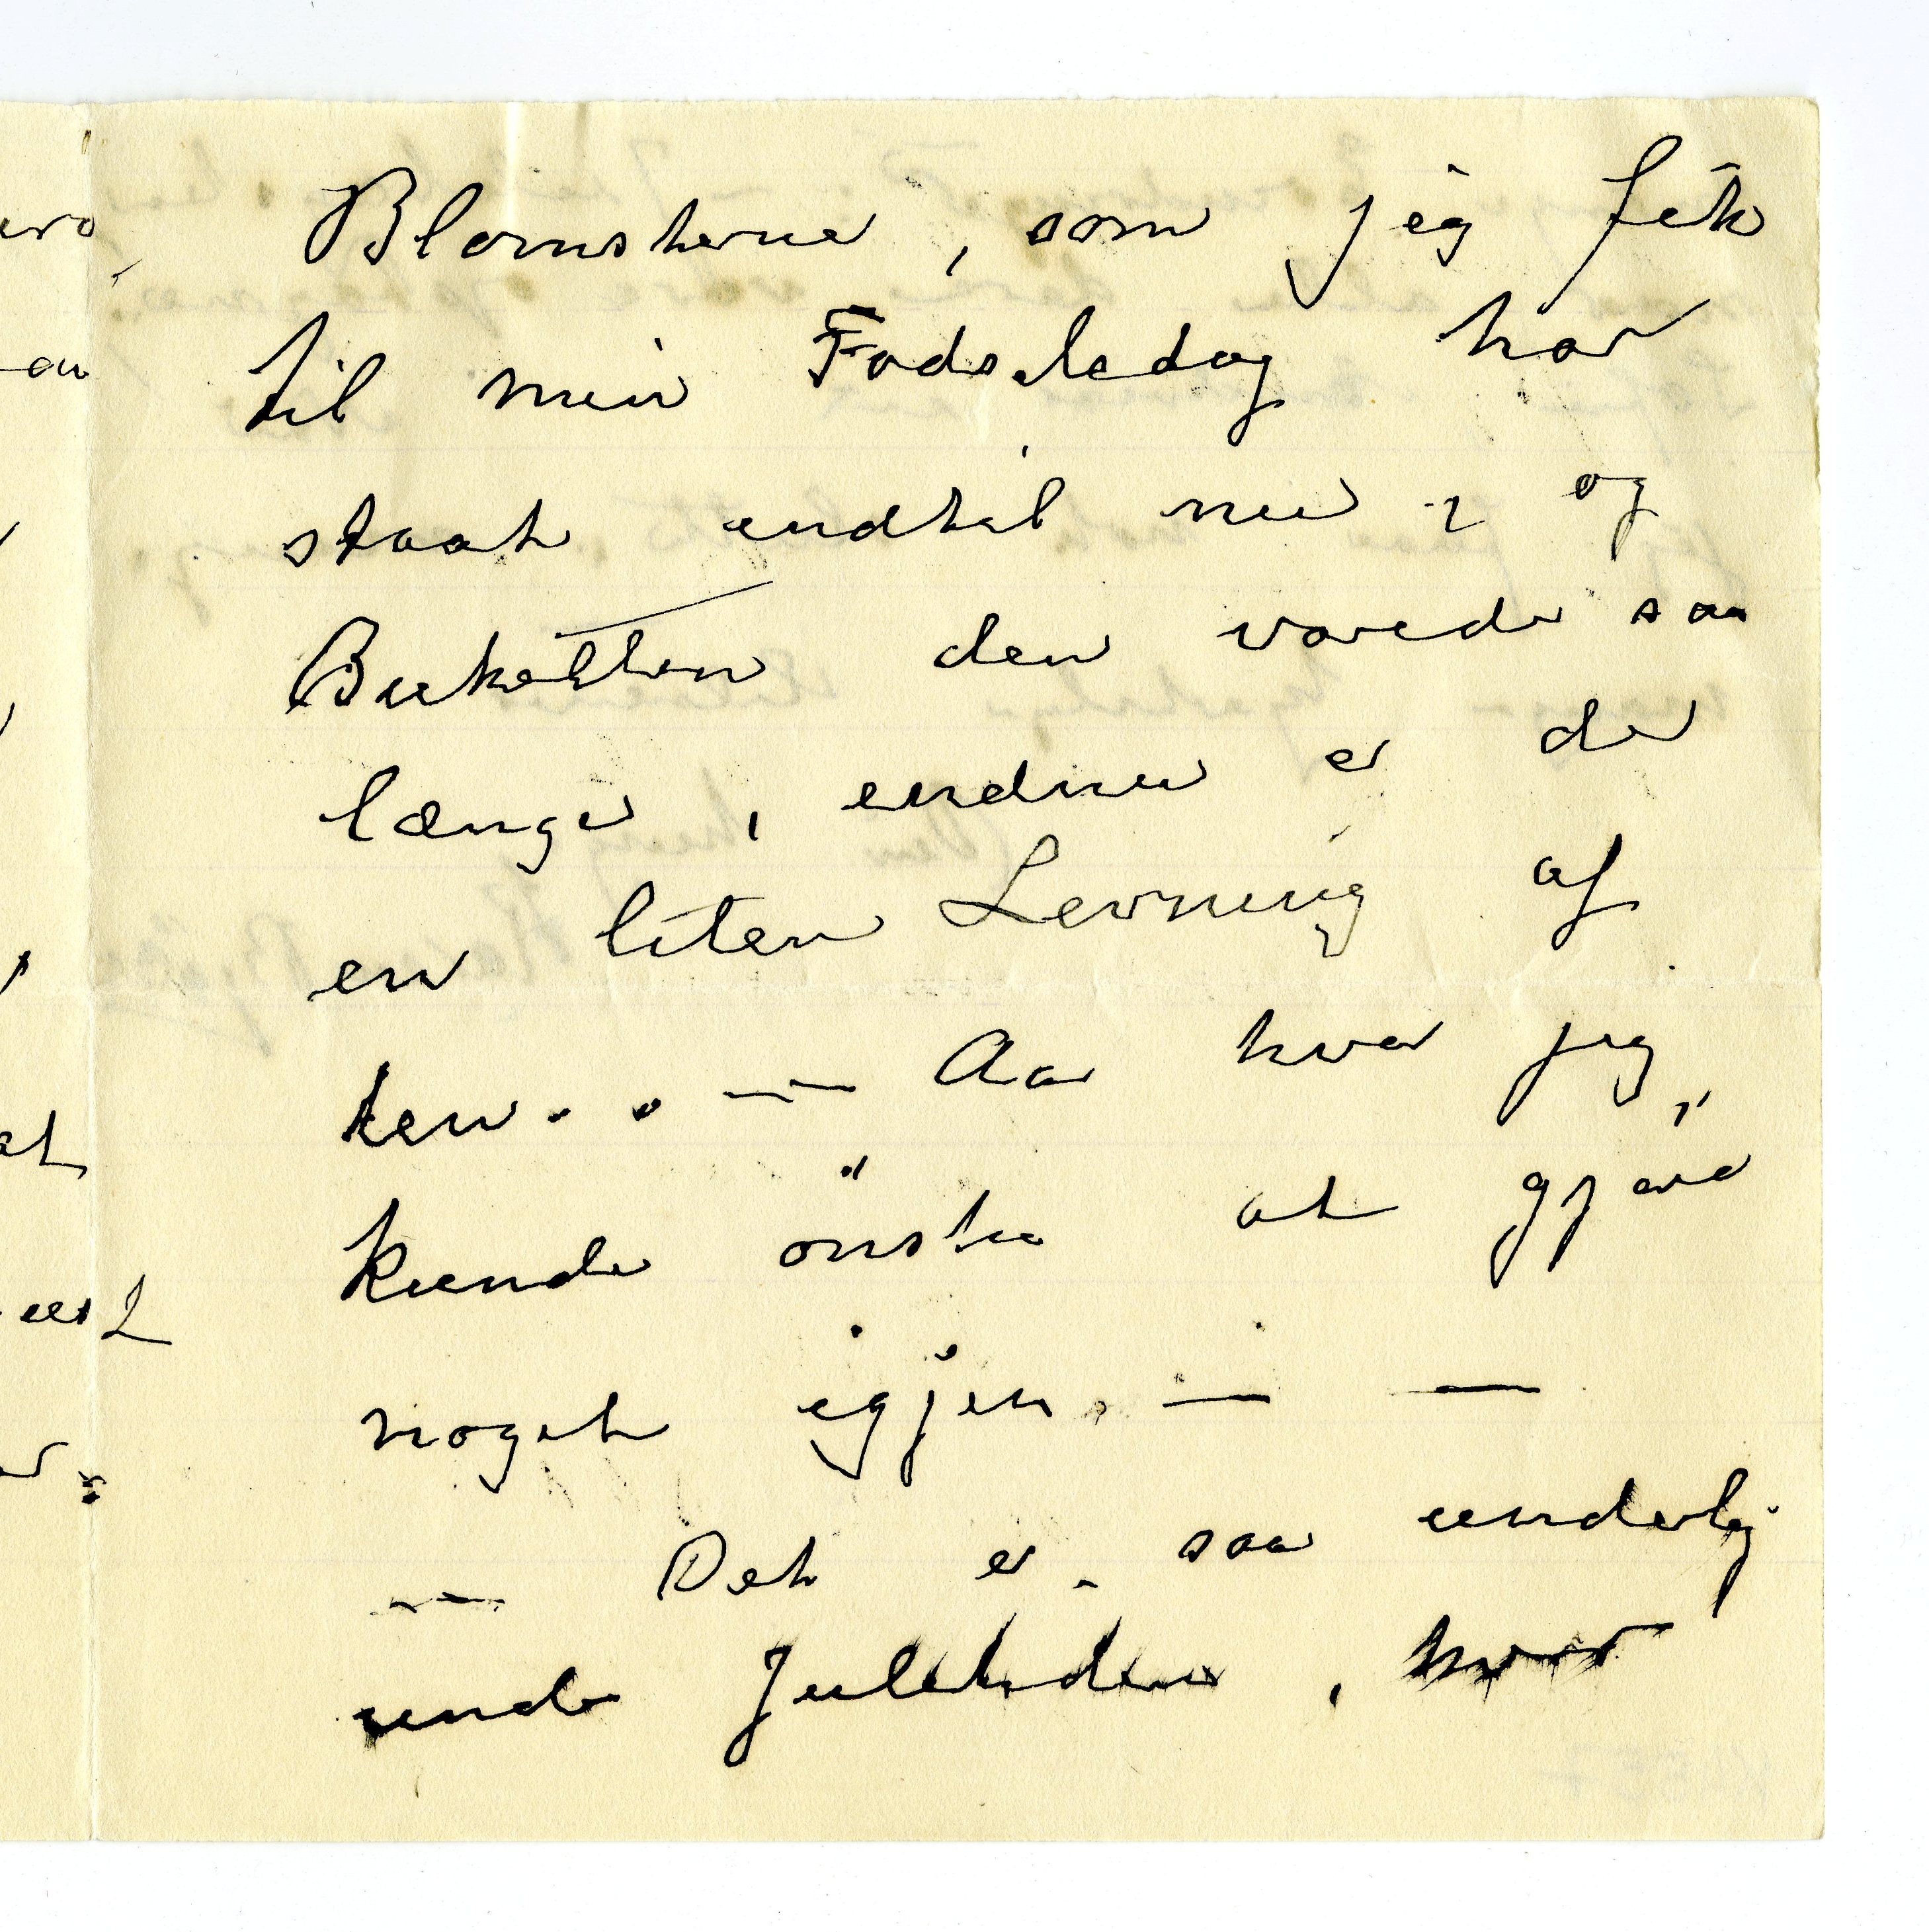 Blomsterne, som jeg fik
til min Fødselsdag har
staat endtil nu, og
Buketten den varede saa
længe, endnu er der
en liten Levning af
den.. — Aa hvad jeg
kunde önske at gjöre
noget igjen. — —
— Det er saa underlig
under Juletiden, hvor